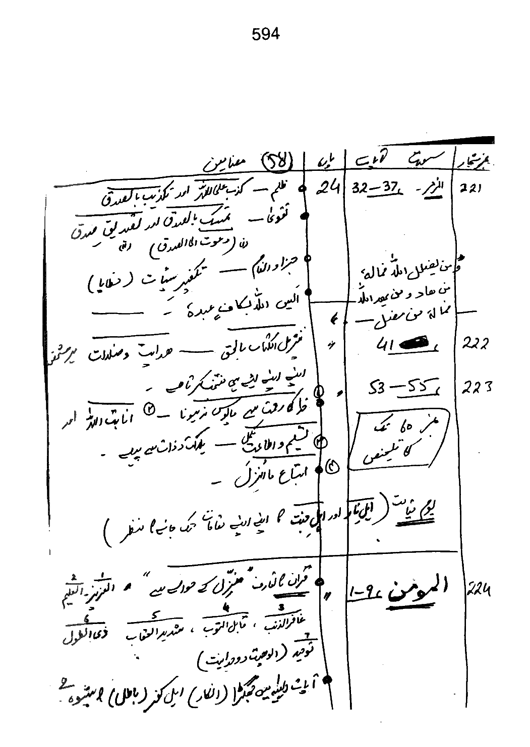 594
نمبر شمار سورت آیات پارہ (58) مضامین
221 الزمر۔ 32—37 24 ظلم — کذب علی اللہ اور تکذیب بالصدق
تقویٰ — تمسک بالصدق اور تصدیقِ صدق
(دعوت الی الصدق)
جزا و انعام — تکفیرِ سیئات (خطایا)
وَمن یضلل اللہ فمالہ، الیس اللہ بکافٍ عبدہ —
من ھاد ومن یھد اللہ
فمالہ من مضل —
222 41 " تنزیل الکتاب بالحق — ھدایت و ضلالت ہر شخص
اپنے اپنے لیے ہی منتخب کرتا ہے ۔
223 53—55 " ① خدا کی رحمت سے مایوس نہ ہونا — ② انابت الی اللہ اور
نمبر 60 تک کا تلخیص
تسلیم و اطاعت — ہلاکت و ذلت سے پہلے ۔
③ اتباع ما اُنزِلَ ۔
یوم قیامت (اہلِ نار اور اہلِ جنت کا اپنے اپنے مقامات تک جانے کا منظر)
224 المومن 1-9 " قرآن کا تعارف "مُنزِّل کے حوالے سے" 1 العزیز 2 العلیم
3 غافر الذنب ، 4 قابل التوب ، 5 شدید العقاب 6 ذی الطول
7 توحید (الوھیت و وحدانیت)
آیات الٰہیہ میں جھگڑا (انکار) اہل کفر (باطل) کا شیوہ ہے